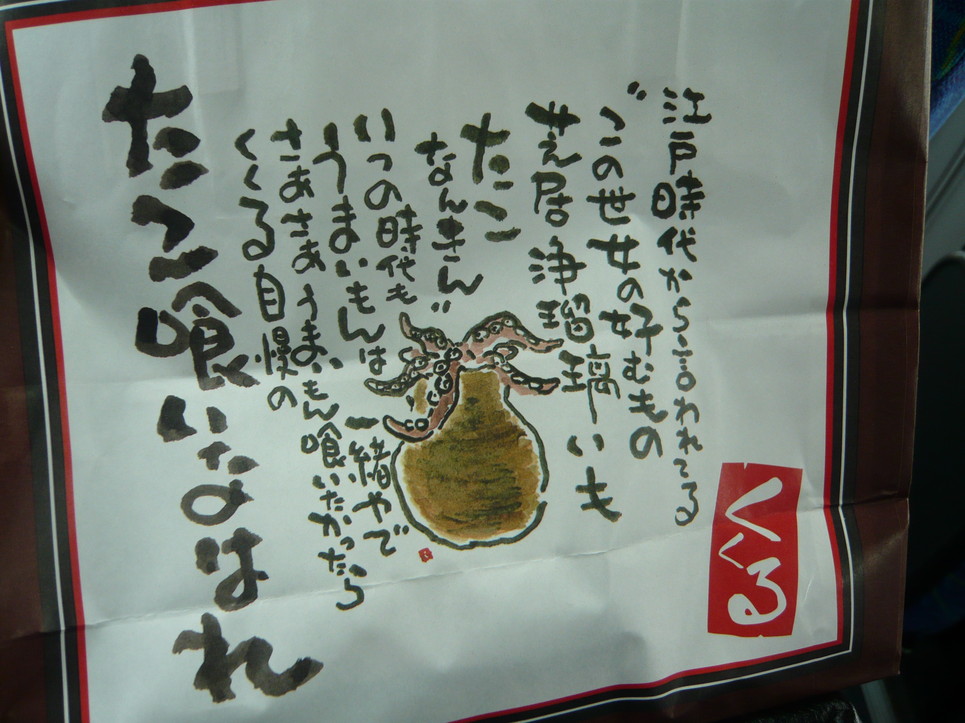 くくる
江戸時代から言われてる
“この世女の好むもの
芝居浄瑠璃いも
たこ
なんきん”
いつの時代も
うまいもんは一緒やで
さあさあうまいもん喰いたかったら
くくる自慢の
たこ喰いなはれ